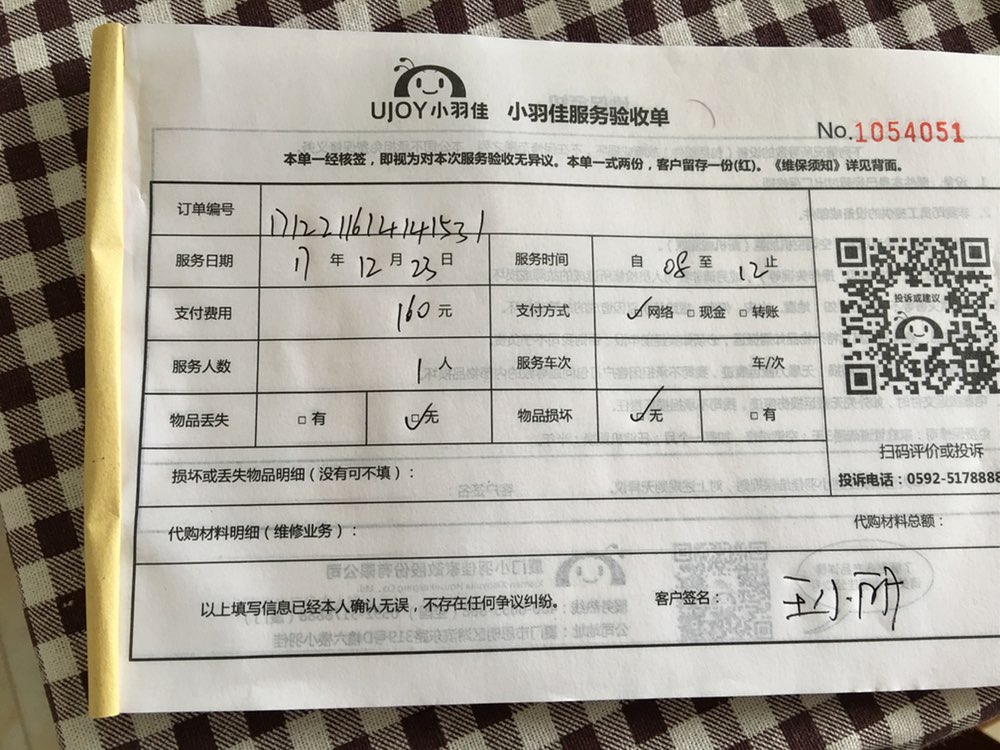 UJOY小羽佳 小羽佳服务验收单
No.1054051
本单一经核签，即视为对本次服务验收无异议。本单一式两份，客户留存一份(红)。《维保须知》详见背面。
订单编号 171221161414141531
服务日期 17 年 12 月 23 日 服务时间 自 08 至 12 止
支付费用 160 元 支付方式 ☑网络 □现金 □转账
服务人数 1 人 服务车次 车/次
物品丢失 □有 ☑无 物品损坏 ☑无 □有
投诉或建议
扫码评价或投诉
投诉电话：0592-5178888
损坏或丢失物品明细（没有可不填）：
代购材料明细（维修业务）： 代购材料总额：
以上填写信息已经本人确认无误，不存在任何争议纠纷。 客户签名：